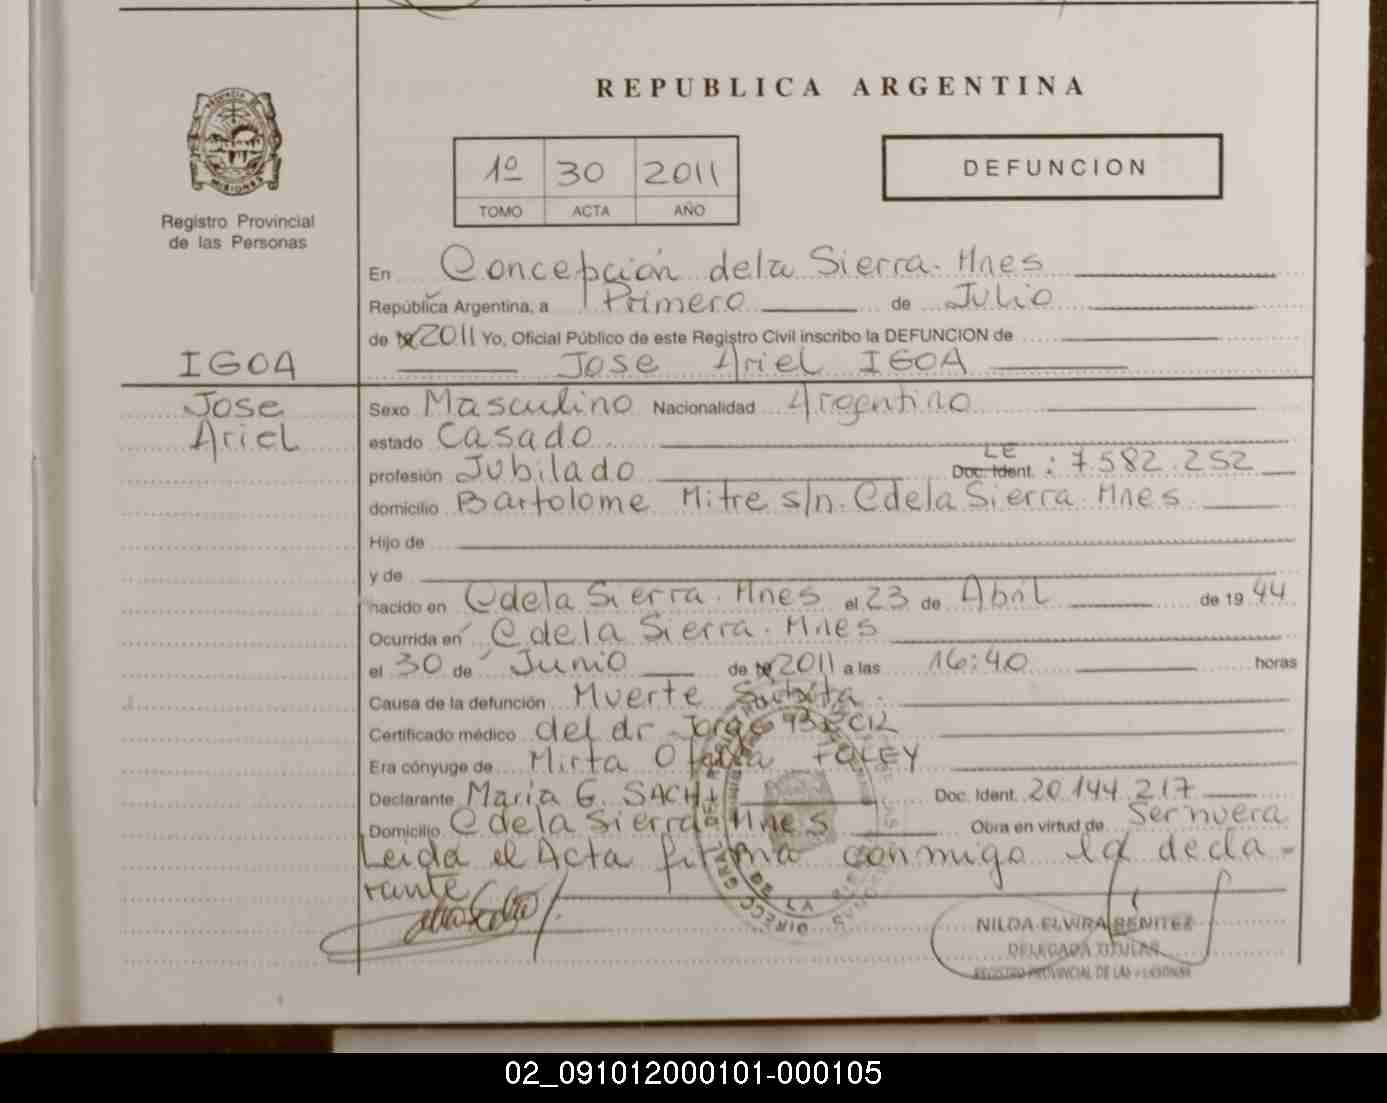 REPUBLICA ARGENTINA
PROVINCIA DE
MISIONES
Registro Provincial
de las Personas
1º 30 2011
TOMO ACTA AÑO
DEFUNCION
En Concepción dela Sierra. Mnes
República Argentina, a Primero de Julio
de 2011 Yo, Oficial Público de este Registro Civil inscribo la DEFUNCION de
IGOA
Jose Ariel IGOA
Jose
Ariel
Sexo Masculino Nacionalidad Argentino
estado Casado
profesión Jubilado Doc. Ident. LE: 7.582.252
domicilio Bartolome Mitre s/n. C dela Sierra. Mnes
Hijo de
y de
nacido en C dela Sierra. Mnes el 23 de Abril de 19 44
Ocurrida en C de la Sierra. Mnes
el 30 de Junio de 2011 a las 16:40 horas
Causa de la defunción Muerte Subita.
Certificado médico del dr Jorge
Era cónyuge de Mirta Ofelia FOLEY
Declarante Maria G. Doc. Ident. 20.144.217
Domicilio C de la Sierra Mnes Obra en virtud de Ser nuera
Leida el Acta firma conmigo la decla-
rante
NILDA ELVIRA BENITEZ
DELEGADA TITULAR
REGISTRO PROVINCIAL DE LAS PERSONAS
02_091012000101-000105